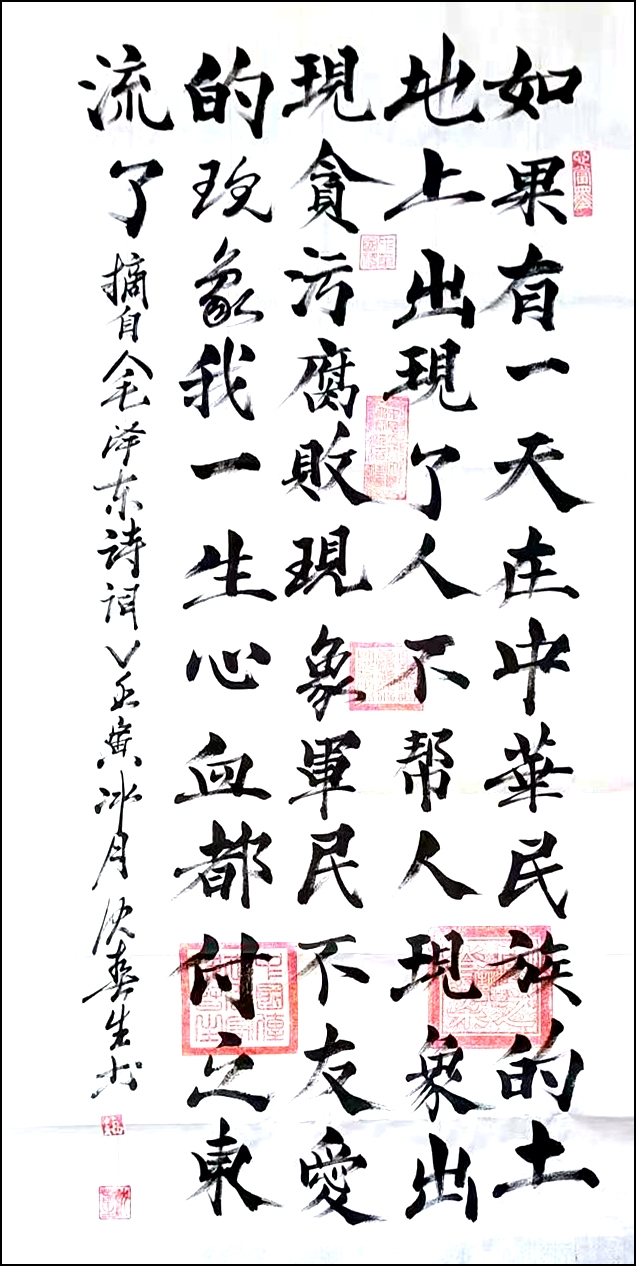 如果有一天在中華民族的土
地上出現了人不帮人現象出
現貪污腐敗現象軍民不友愛
的现象我一生心血都付之東
流了 摘自《毛泽东诗词》壬寅冰月沈春生书